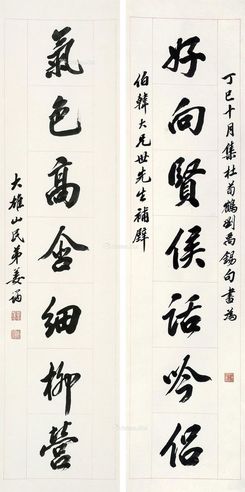 丁巳十月集杜荀鶴劉禹錫句書為
好向賢侯話吟侶
伯韓大兄世先生補壁
氣色高含細柳營
大雄山民弟姜筠